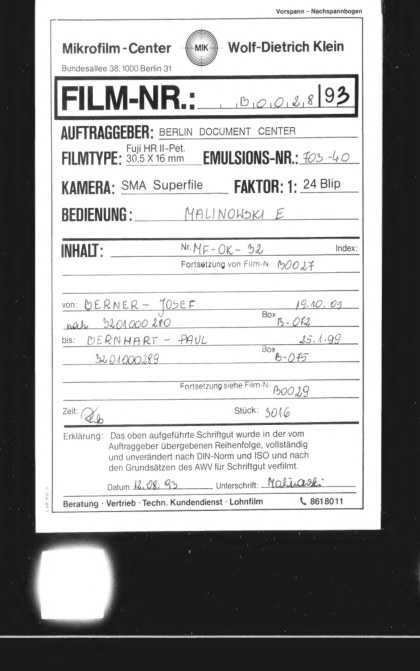 Vorspann – Nachspannbogen
Mikrofilm-Center MIK Wolf-Dietrich Klein
Bundesallee 38, 1000 Berlin 31
FILM-NR.: B,0,0,2,8|93
AUFTRAGGEBER: BERLIN DOCUMENT CENTER
FILMTYPE: Fuji HR II-Pet. 30,5 X 16 mm EMULSIONS-NR.: 703-40
KAMERA: SMA Superfile FAKTOR: 1: 24 Blip
BEDIENUNG: MALINOWSKI E
INHALT: Nr. MF-OK-32 Index:
Fortsetzung von Film-N. B0027
von: BERNER - JOSEF 19.10.01
nach 3201000210 Box B-072
bis: BERNHART - PAUL 25.1.99
3201000289 Box B-075
Fortsetzung siehe Film-N. B0029
Zeit: Stück: 3016
Erklärung: Das oben aufgeführte Schriftgut wurde in der vom
Auftraggeber übergebenen Reihenfolge, vollständig
und unverändert nach DIN-Norm und ISO und nach
den Grundsätzen des AWV für Schriftgut verfilmt.
Datum: 12.08.93 Unterschrift: Malinowski
Beratung · Vertrieb · Techn. Kundendienst · Lohnfilm 8618011